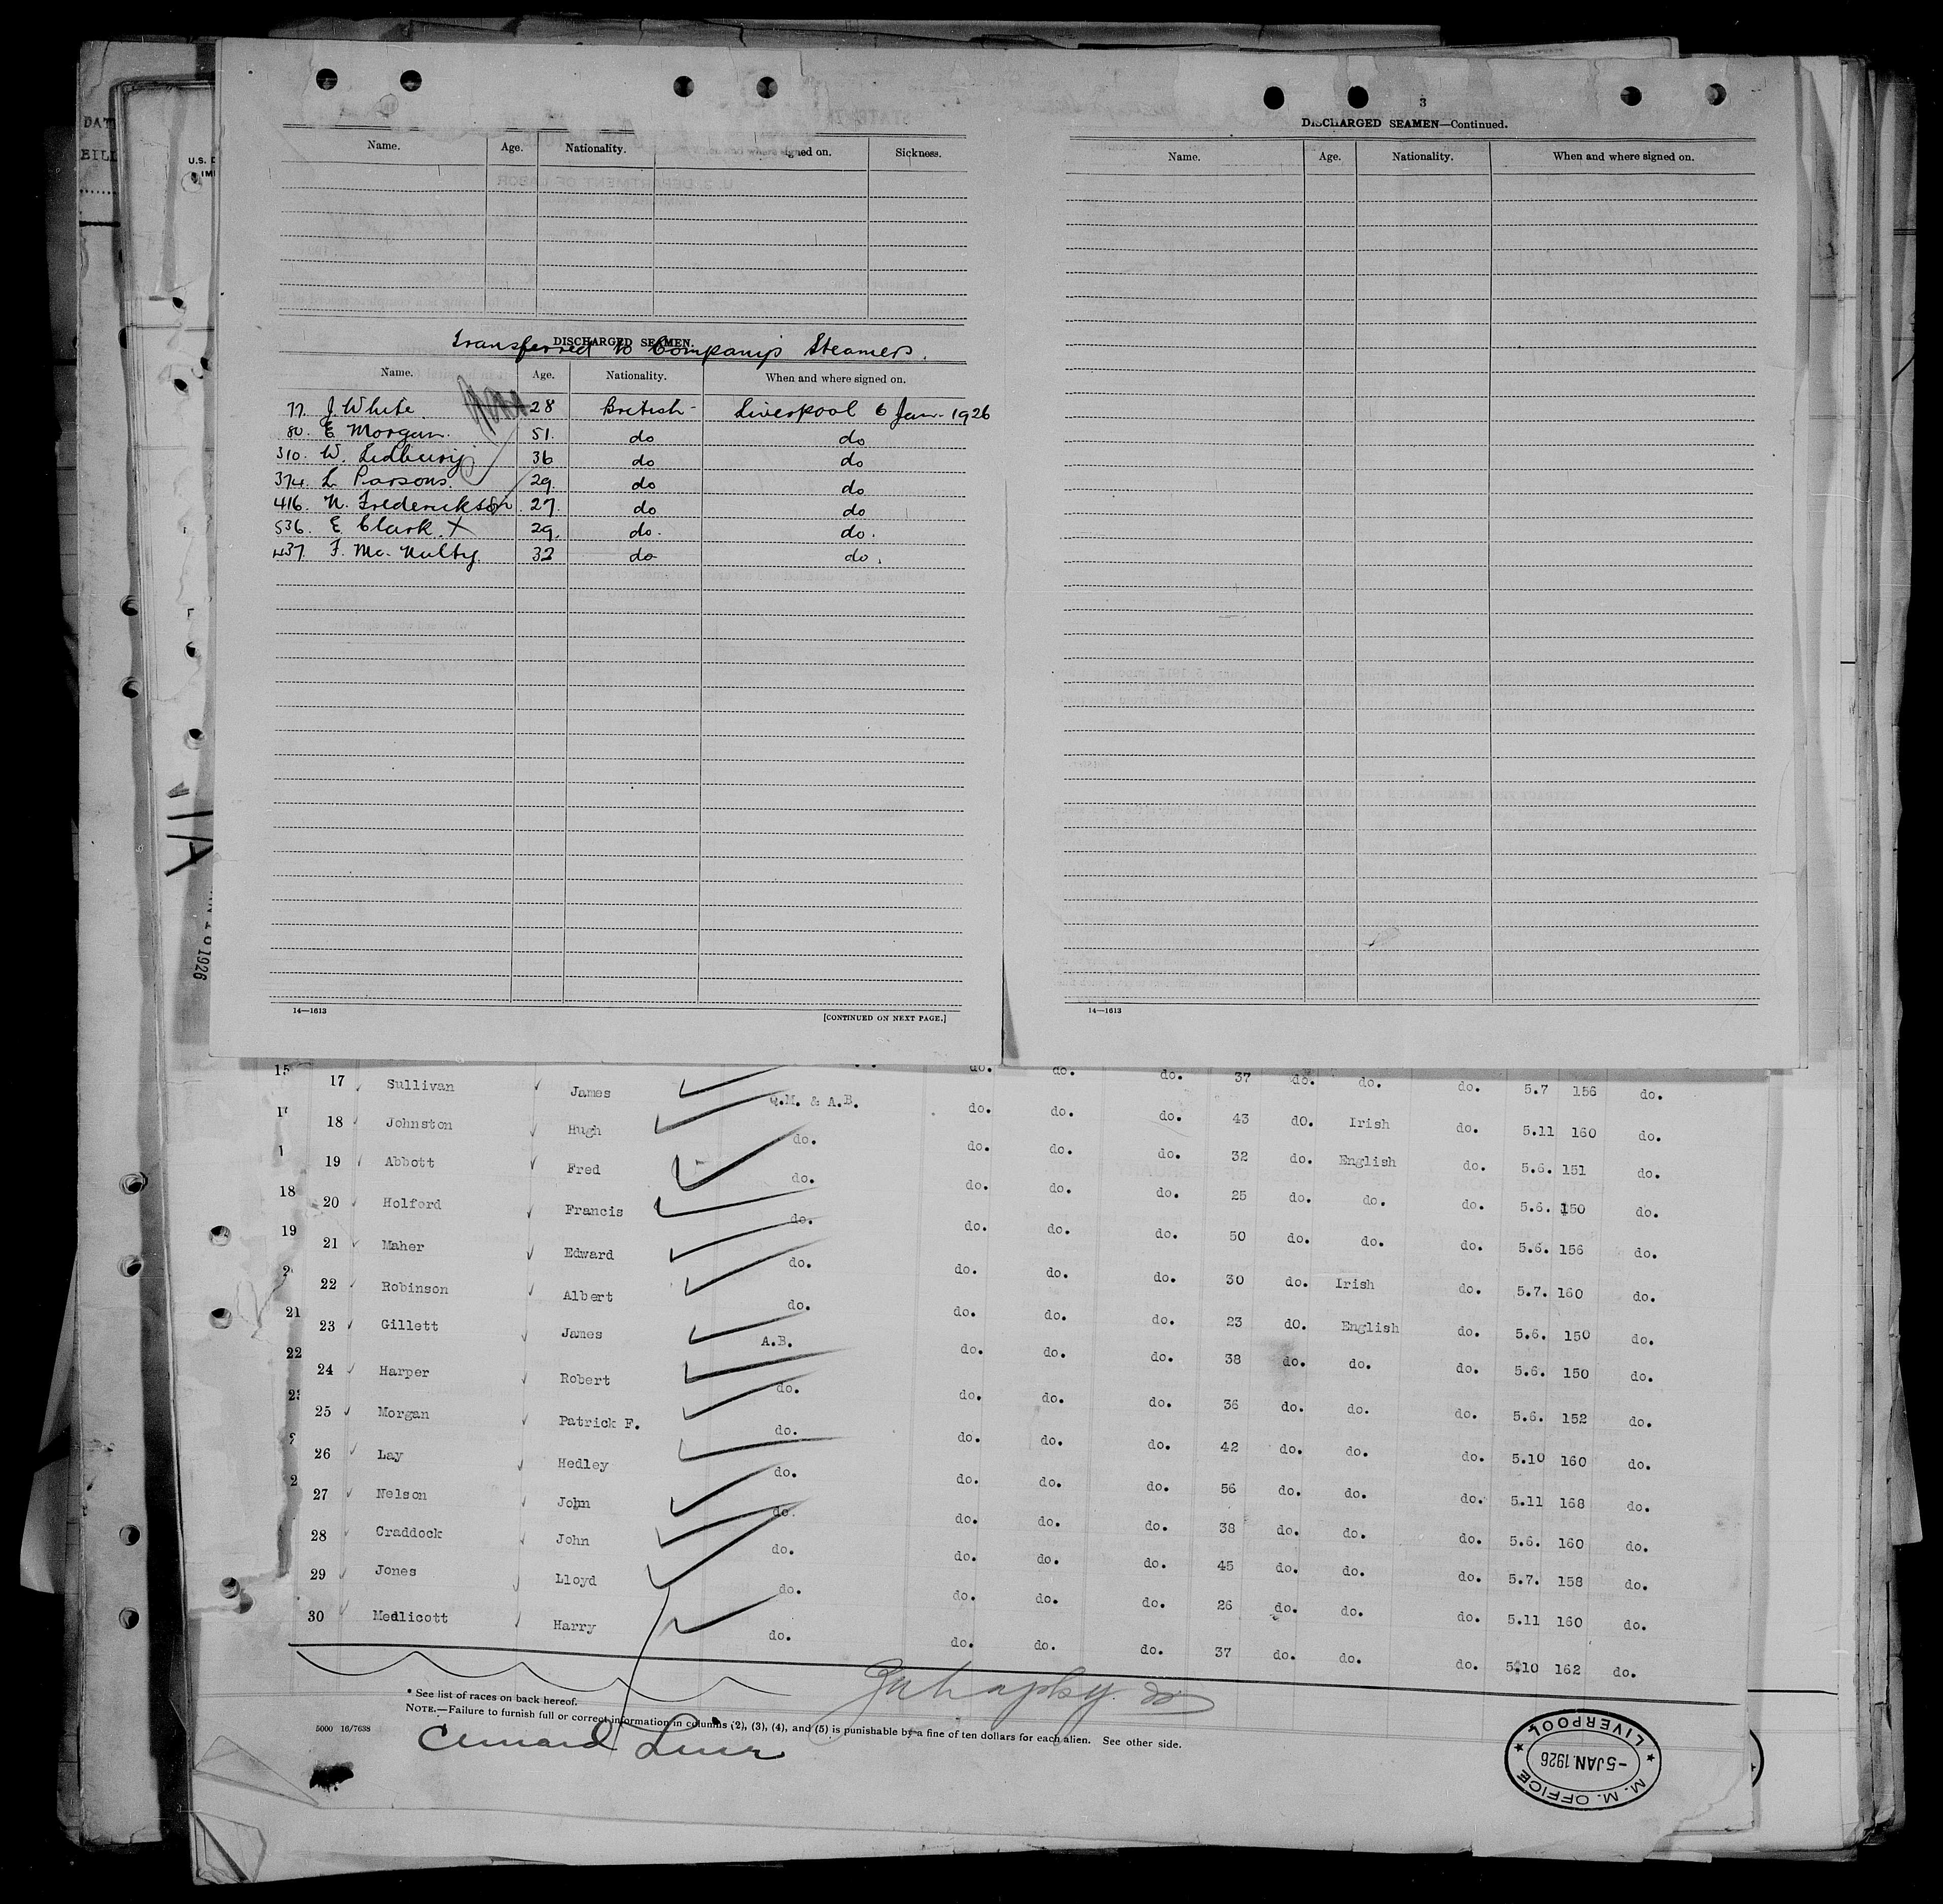 DAT
BILL
U.S. D
IMI
Name. Age. Nationality. signed on. Sickness.
DISCHARGED SEAMEN.
Transferred to Company's Steamers.
Name. Age. Nationality. When and where signed on.
77. J. White. 28 British - Liverpool 6 Jan. 1926
80. E Morgan. 51. do do
310. W. Ledbury 36 do do
374. L Parsons. 29. do do
416. N. Frederickson 27. do do
536. E Clark. X 29. do. do.
437. F. Mc. Nulty. 32 do do.
14—1613 [CONTINUED ON NEXT PAGE.]
3
DISCHARGED SEAMEN—Continued.
Name. Age. Nationality. When and where signed on.
14—1613
1926
15 17 Sullivan James Q.M. & A.B. do. do. do. 37 do. do. do. 5.7 156 do.
18 Johnston Hugh do. do. do. do. 43 do. Irish do. 5.11 160 do.
19 Abbott Fred do. do. do. do. 32 do. English do. 5.6. 151 do.
18 20 Holford Francis do. do. do. do. 25 do. do. do. 5.6. 150 do.
19 21 Maher Edward do. do. do. do. 50 do. do. do. 5.6. 156 do.
22 Robinson Albert do. do. do. do. 30 do. Irish do. 5.7. 160 do.
21 23 Gillett James A.B. do. do. do. 23 do. English do. 5.6. 150 do.
22 24 Harper Robert do. do. do. do. 38 do. do. do. 5.6. 150 do.
25 Morgan Patrick F. do. do. do. do. 36 do. do. do. 5.6. 152 do.
26 Lay Hedley do. do. do. do. 42 do. do. do. 5.10 160 do.
27 Nelson John do. do. do. do. 56 do. do. do. 5.11 168 do.
28 Craddock John do. do. do. do. 38 do. do. do. 5.6. 160 do.
29 Jones Lloyd do. do. do. do. 45 do. do. do. 5.7. 158 do.
30 Medlicott Harry do. do. do. do. 26 do. do. do. 5.11 160 do.
do. do. do. 37 do. do. do. 5.10 162 do.
* See list of races on back hereof.
NOTE.—Failure to furnish full or correct information in columns (2), (3), (4), and (5) is punishable by a fine of ten dollars for each alien. See other side.
5000 16/7638
Cunard Line
M. M. OFFICE
-5 JAN. 1926
LIVERPOOL